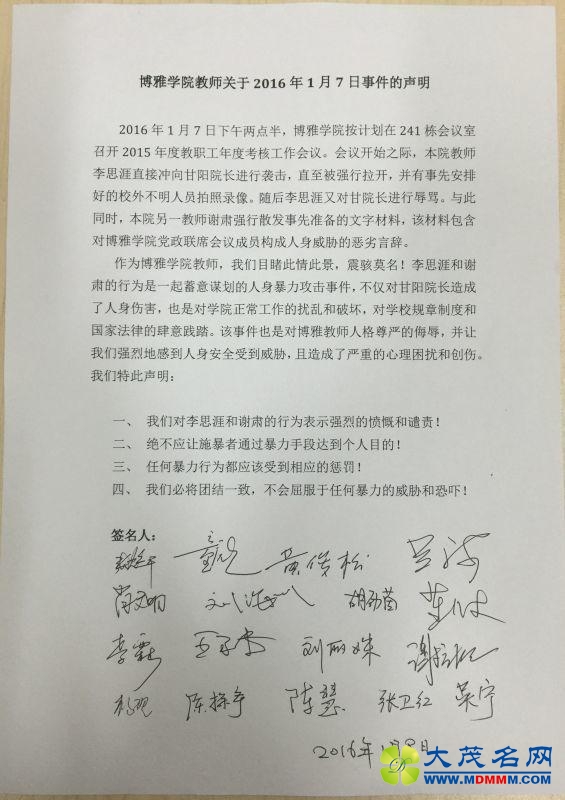 博雅学院教师关于 2016 年 1 月 7 日事件的声明
2016 年 1 月 7 日下午两点半，博雅学院按计划在 241 栋会议室
召开 2015 年度教职工年度考核工作会议。会议开始之际，本院教师
李思涯直接冲向甘阳院长进行袭击，直至被强行拉开，并有事先安排
好的校外不明人员拍照录像。随后李思涯又对甘院长进行辱骂。与此
同时，本院另一教师谢肃强行散发事先准备的文字材料，该材料包含
对博雅学院党政联席会议成员构成人身威胁的恶劣言辞。
作为博雅学院教师，我们目睹此情此景，震骇莫名！李思涯和谢
肃的行为是一起蓄意谋划的人身暴力攻击事件，不仅对甘阳院长造成
了人身伤害，也是对学院正常工作的扰乱和破坏，对学校规章制度和
国家法律的肆意践踏。该事件也是对博雅教师人格尊严的侮辱，并让
我们强烈地感到人身安全受到威胁，且造成了严重的心理困扰和创伤。
我们特此声明：
一、 我们对李思涯和谢肃的行为表示强烈的愤慨和谴责！
二、 绝不应让施暴者通过暴力手段达到个人目的！
三、 任何暴力行为都应该受到相应的惩罚！
四、 我们必将团结一致，不会屈服于任何暴力的威胁和恐吓！
签名人：
黄俊松
肖文明 董波
李霖 刘丽姝
杨砚 陈慧 张卫红 吴宁
2016年1月8日
大茂名网
WWW.MDMMM.COM